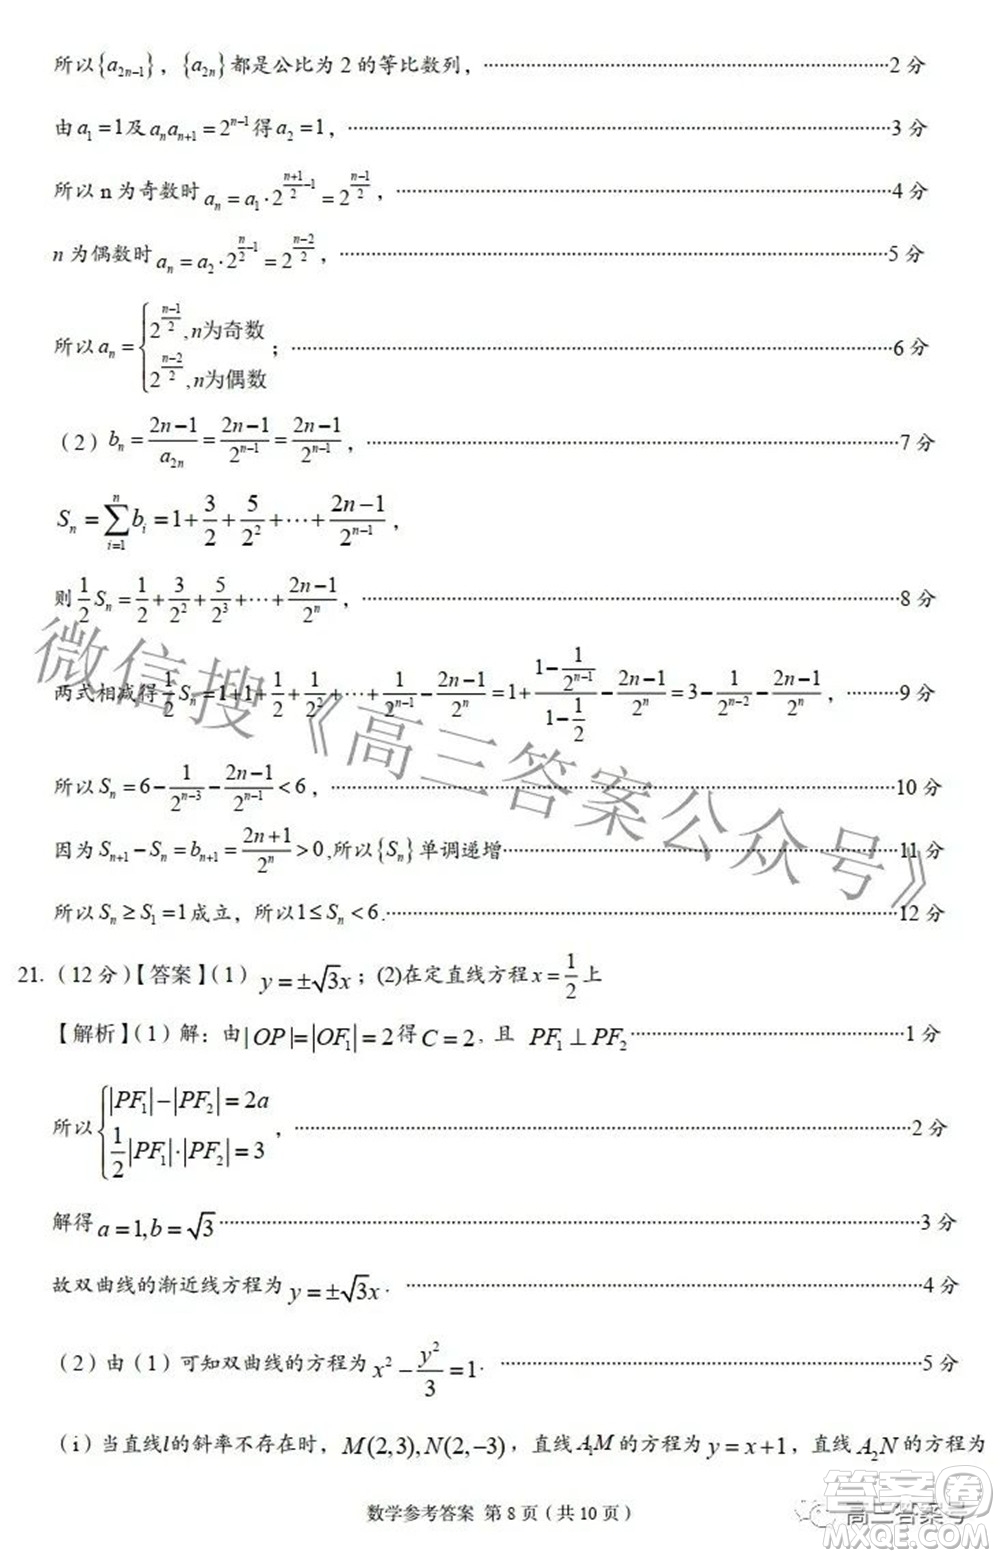 所以{a₂ₙ₋₁}，{a₂ₙ}都是公比为 2 的等比数列，……2 分
由a₁=1及aₙaₙ₊₁=2^(n-1)得a₂=1，……3 分
所以 n 为奇数时 aₙ=a₁·2^((n+1)/2-1)=2^((n-1)/2)，……4 分
n 为偶数时 aₙ=a₂·2^(n/2-1)=2^((n-2)/2)，……5 分
所以aₙ={2^((n-1)/2),n为奇数；2^((n-2)/2),n为偶数；……6 分
（2）bₙ=(2n-1)/a₂ₙ=(2n-1)/2^(n-1)=(2n-1)/2^(n-1)，……7 分
Sₙ=∑(i=1→n)bᵢ=1+3/2+5/2²+⋯+(2n-1)/2^(n-1)，
则1/2Sₙ=1/2+3/2²+5/2³+⋯+(2n-1)/2ⁿ，……8 分
两式相减得1/2Sₙ=1+1+1/2+1/2²+⋯+1/2^(n-1)-(2n-1)/2ⁿ=1+(1-1/2^(n-1))/(1-1/2)-(2n-1)/2ⁿ=3-1/2^(n-2)-(2n-1)/2ⁿ，……9 分
所以Sₙ=6-1/2^(n-3)-(2n-1)/2^(n-1)<6，……10 分
因为Sₙ₊₁-Sₙ=bₙ₊₁=(2n+1)/2ⁿ>0,所以{Sₙ}单调递增……11 分
所以Sₙ≥S₁=1成立，所以1≤Sₙ<6.……12 分
21.（12 分）【答案】（1）y=±√3x；(2)在定直线方程x=1/2上
【解析】（1）解：由|OP|=|OF₁|=2得C=2，且 PF₁⊥PF₂……1 分
所以{|PF₁|-|PF₂|=2a；1/2|PF₁|·|PF₂|=3，……2 分
解得a=1,b=√3……3 分
故双曲线的渐近线方程为y=±√3x.……4 分
（2）由（1）可知双曲线的方程为x²-y²/3=1.……5 分
（i）当直线l的斜率不存在时，M(2,3),N(2,-3)，直线A₁M的方程为y=x+1，直线A₂N的方程为
数学参考答案 第 8 页（共 10 页）
微信搜《高三答案公众号》
高三答案号
答案圈
MXQE.COM